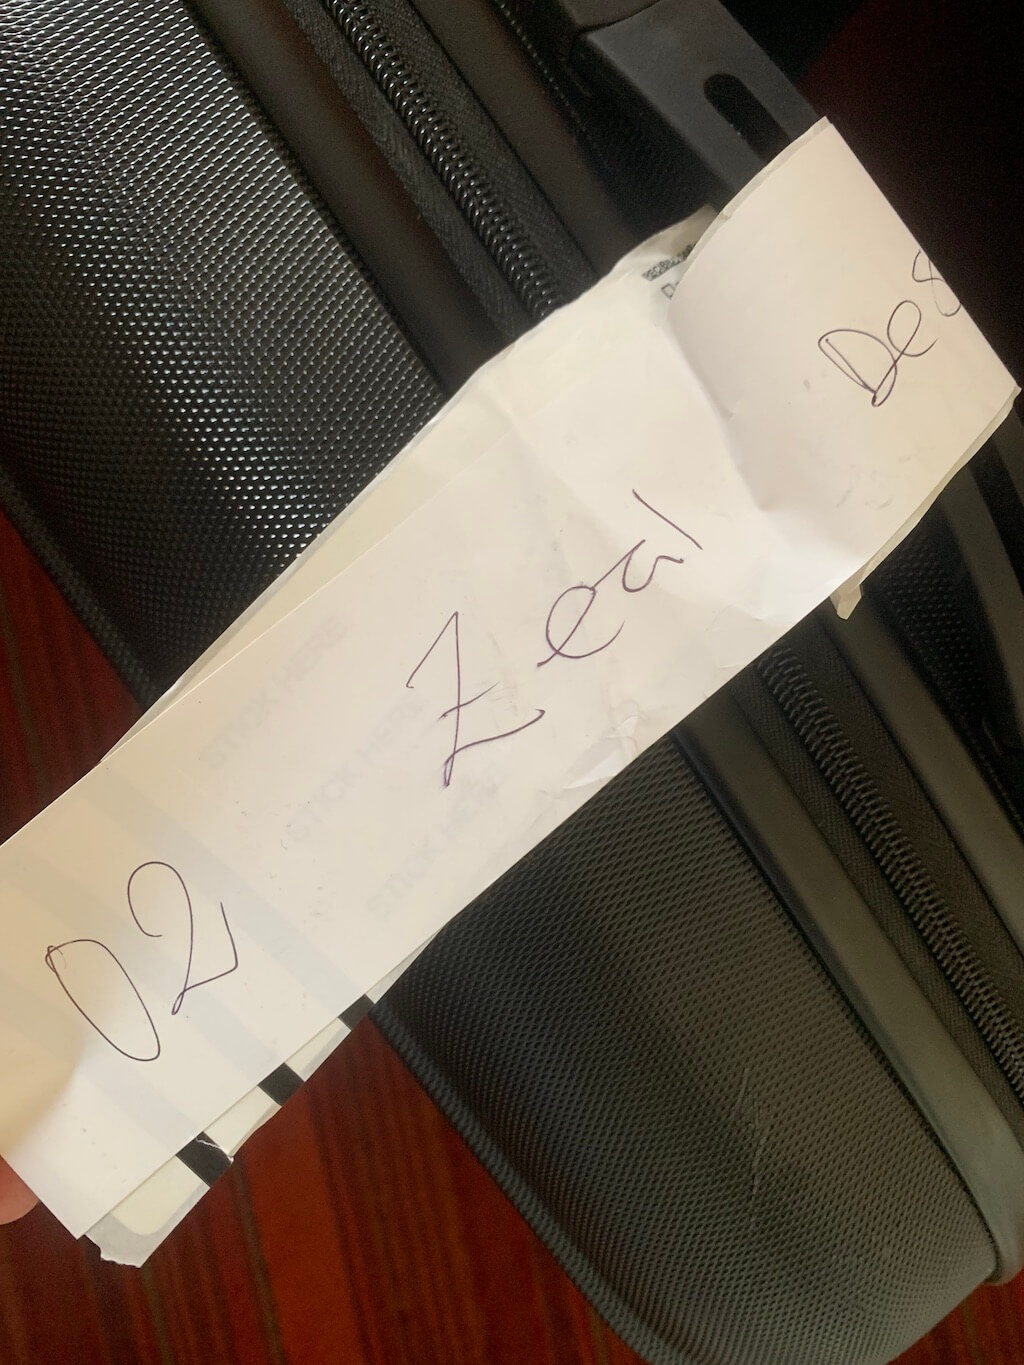 02 Zeal Des
STICK HERE
STICK HERE
STICK HERE